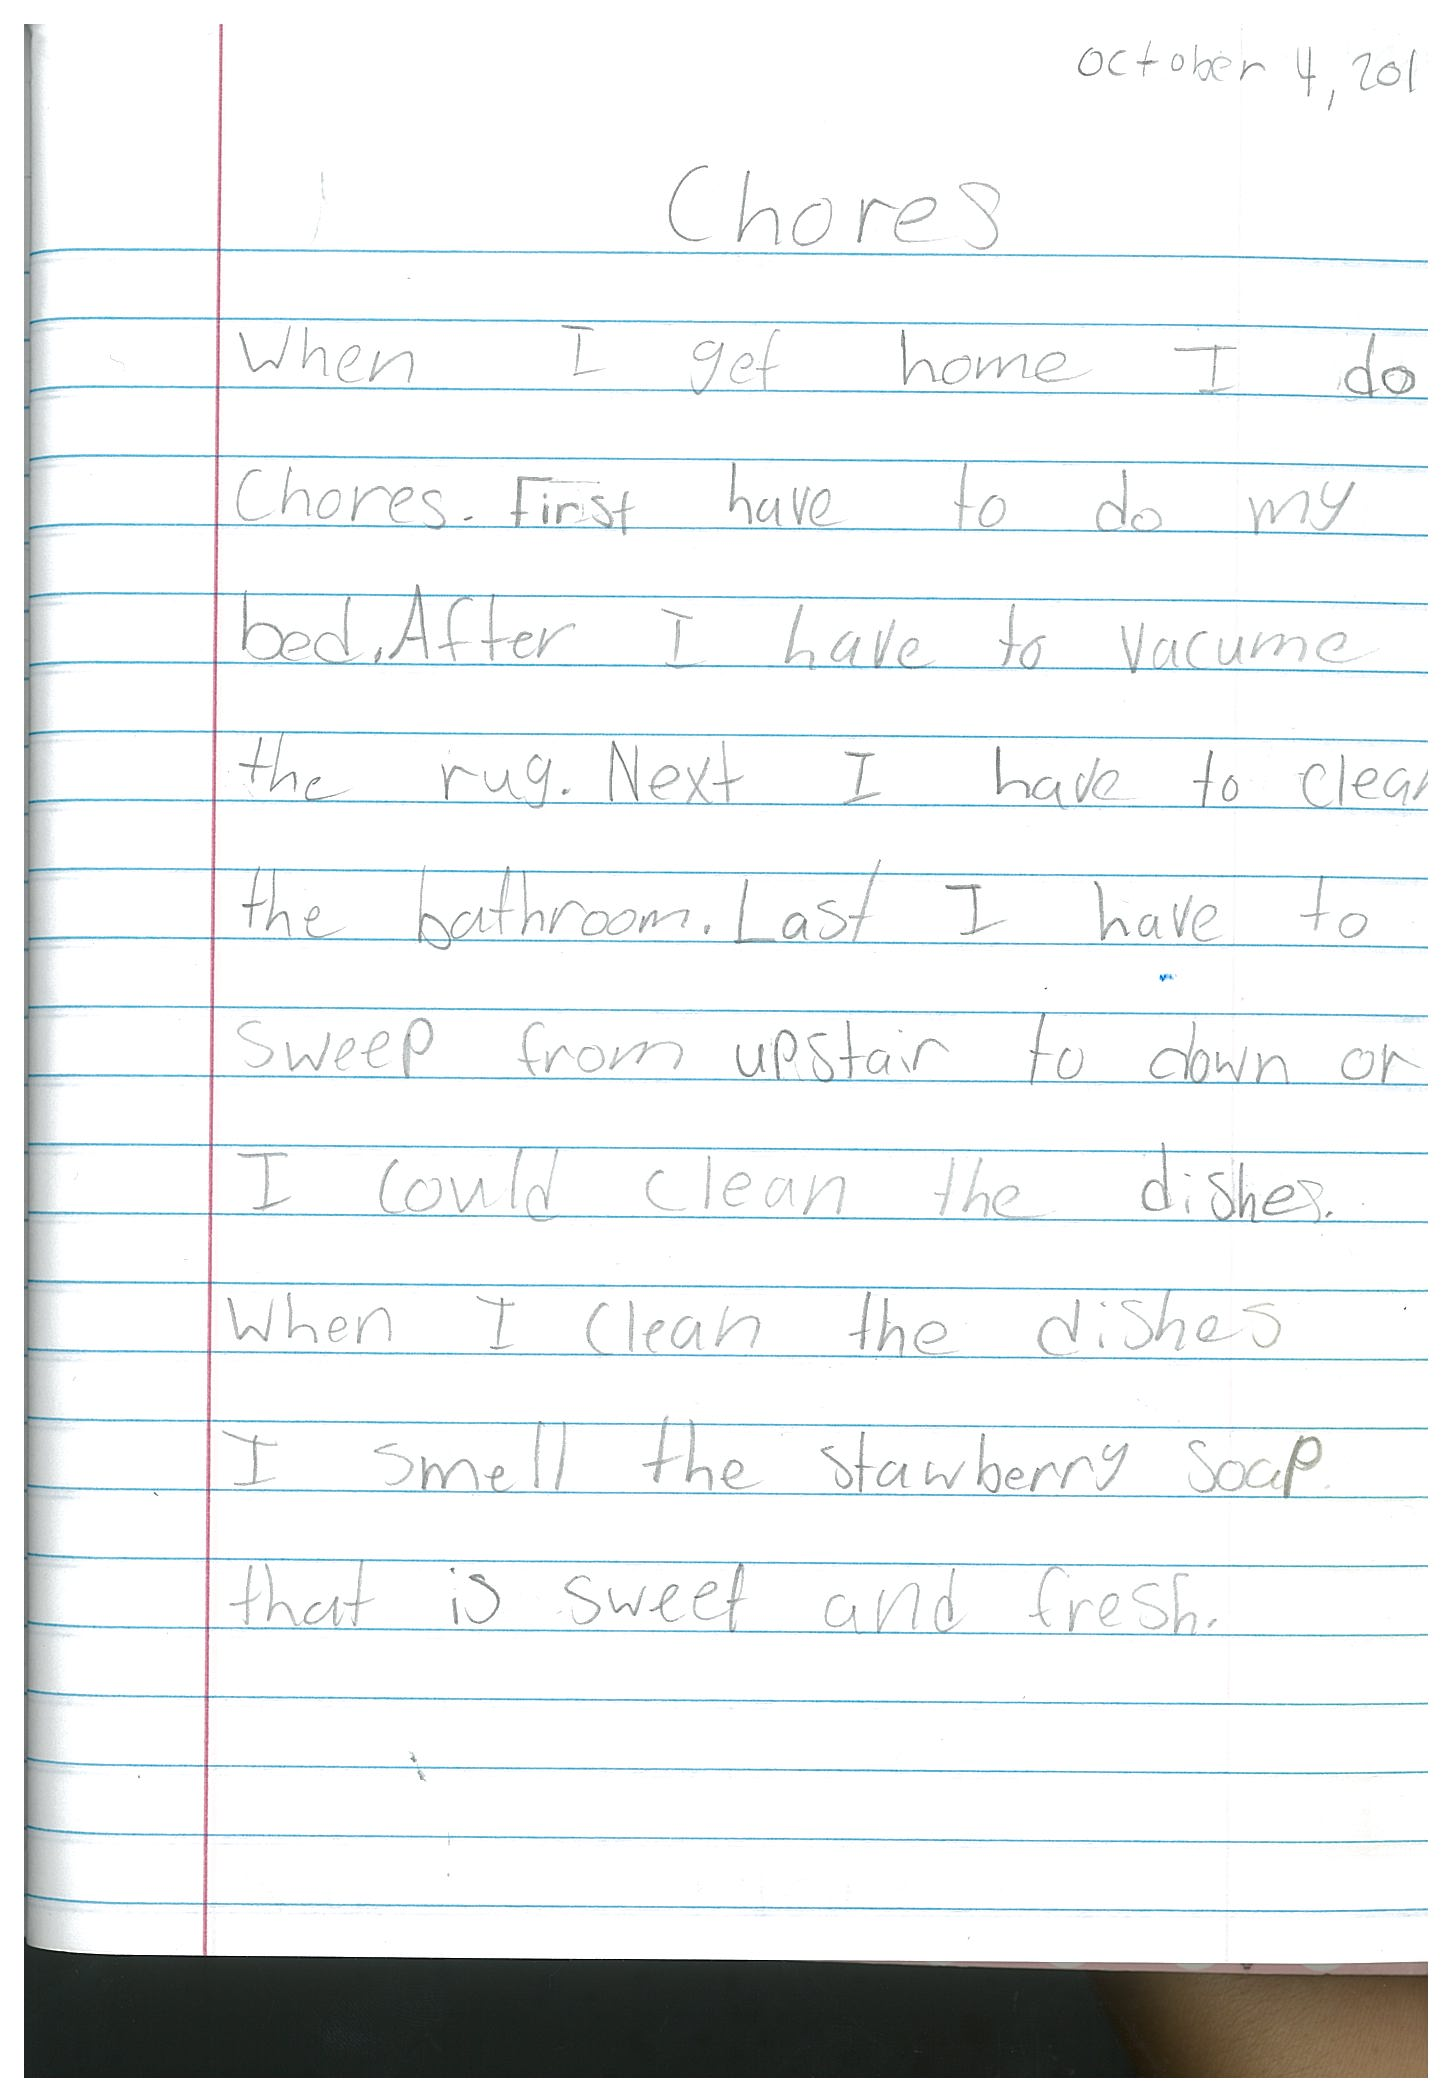 October 4, 201
Chores
When I get home I do
Chores. First have to do my
bed. After I have to vacume
the rug. Next I have to clean
the bathroom. Last I have to
sweep from upstair to down or
I could clean the dishes.
When I clean the dishes
I smell the stawberry soap.
that is sweet and fresh.